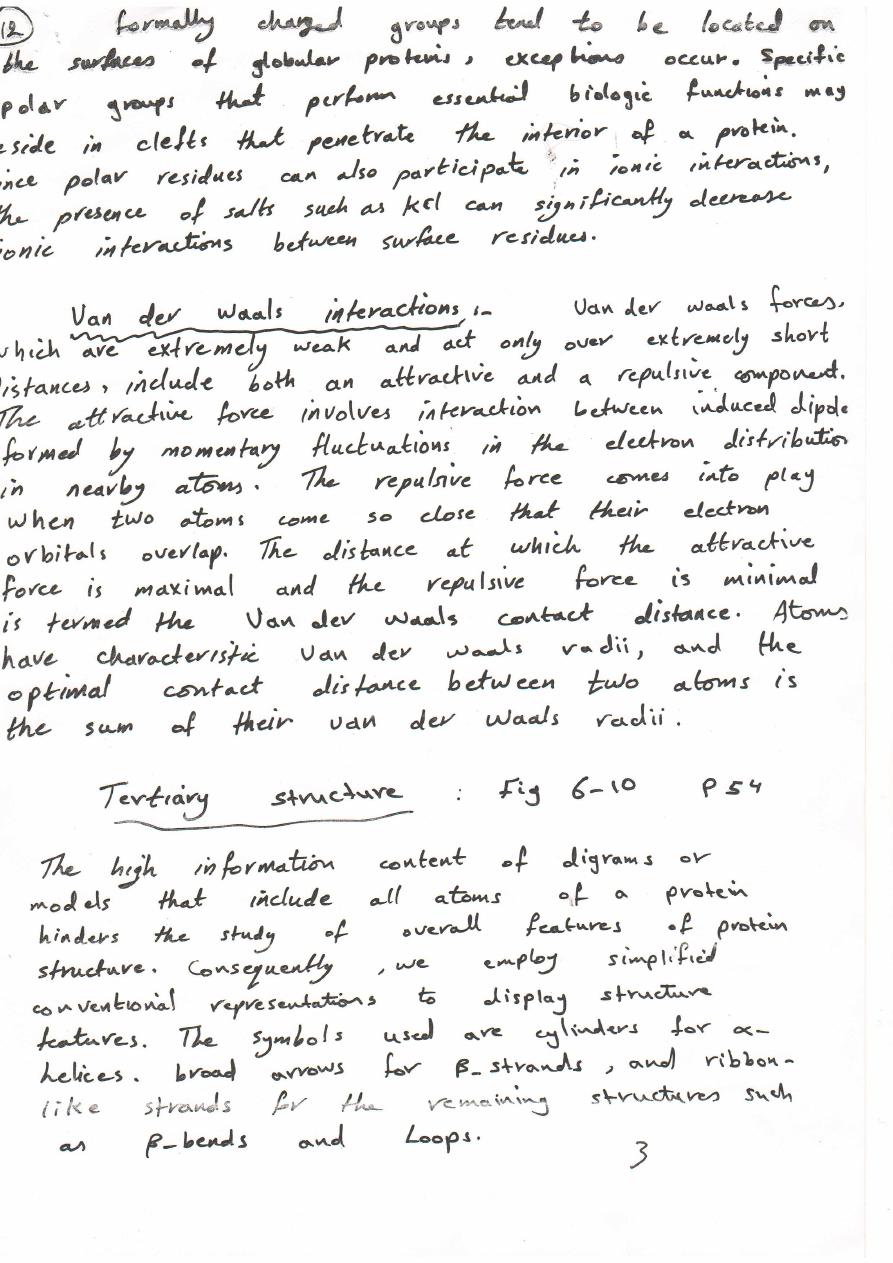 12 formally charged groups tend to be located on
the surfaces of globular proteins, exceptions occur. Specific
polar groups that perform essential biologic functions may
eside in clefts that penetrate the interior of a protein.
ince polar residues can also participate in ionic interactions,
the presence of salts such as KCl can significantly decrease
ionic interactions between surface residues.
Van der Waals interactions :- Van der Waals forces,
which are extremely weak and act only over extremely short
istances, include both an attractive and a repulsive component.
The attractive force involves interaction between induced dipole
formed by momentary fluctuations in the electron distribution
in nearby atoms. The repulsive force comes into play
when two atoms come so close that their electron
orbitals overlap. The distance at which the attractive
force is maximal and the repulsive force is minimal
is termed the Van der Waals contact distance. Atoms
have characteristic Van der Waals radii, and the
optimal contact distance between two atoms is
the sum of their van der Waals radii.
Tertiary structure : Fig 6-10 P 54
The high information content of digrams or
models that include all atoms of a protein
hinders the study of overall features of protein
structure. Consequently, we employ simplified
conventional representations to display structure
features. The symbols used are cylinders for α-
helices. broad arrows for β-strands, and ribbon-
like strands for the remaining structures such
as β-bends and Loops.
3